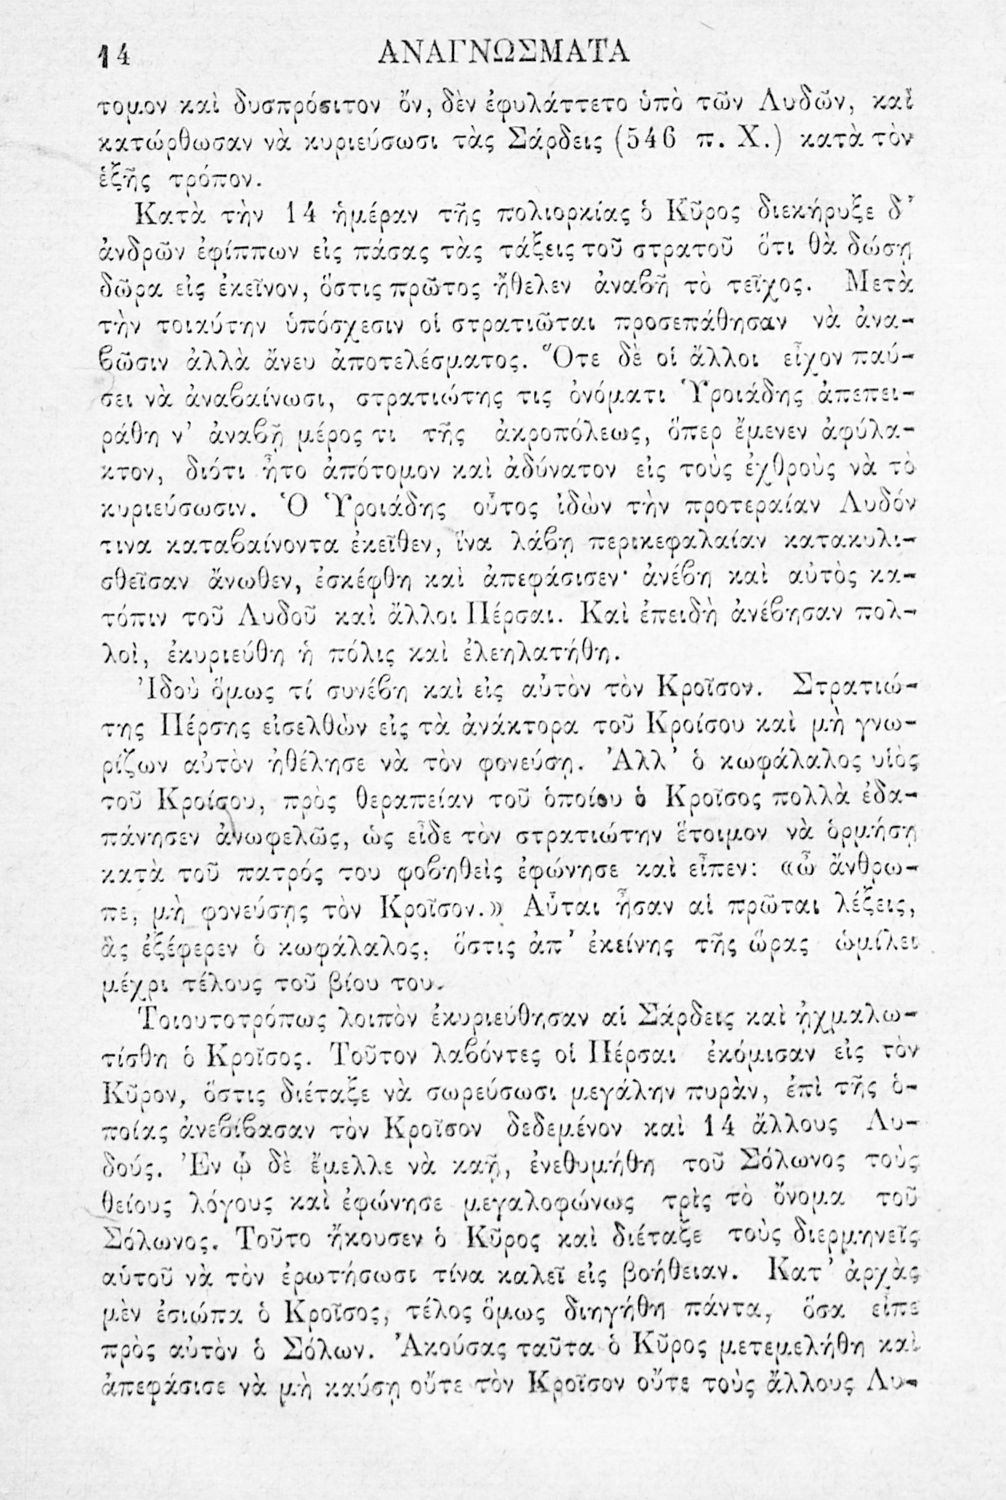 14 ΑΝΑΓΝΩΣΜΑΤΑ
τομον καὶ δυσπρόσιτον ὄν, δὲν ἐφυλάττετο ὑπὸ τῶν Λυδῶν, καὶ
κατώρθωσαν νὰ κυριεύσωσι τὰς Σάρδεις (546 π. Χ.) κατὰ τὸν
ἑξῆς τρόπον.
Κατὰ τὴν 14 ἡμέραν τῆς πολιορκίας ὁ Κῦρος διεκήρυξε δ᾿
ἀνδρῶν ἐφίππων εἰς πάσας τὰς τάξεις τοῦ στρατοῦ ὅτι θὰ δώσῃ
δῶρα εἰς ἐκεῖνον, ὅστις πρῶτος ἤθελεν ἀναβῆ τὸ τεῖχος. Μετὰ
τὴν τοιαύτην ὑπόσχεσιν οἱ στρατιῶται προσεπάθησαν νὰ ἀνα-
βῶσιν ἀλλὰ ἄνευ ἀποτελέσματος. Ὅτε δὲ οἱ ἄλλοι εἶχον παύ-
σει νὰ ἀναβαίνωσι, στρατιώτης τις ὀνόματι Ὑροιάδης ἀπεπει-
ράθη ν᾿ ἀναβῇ μέρος τι τῆς ἀκροπόλεως, ὅπερ ἔμενεν ἀφύλα-
κτον, διότι ἦτο ἀπότομον καὶ ἀδύνατον εἰς τοὺς ἐχθροὺς νὰ τὸ
κυριεύσωσιν. Ὁ Ὑροιάδης οὗτος ἰδὼν τὴν προτεραίαν Λυδόν
τινα καταβαίνοντα ἐκεῖθεν, ἵνα λάβῃ περικεφαλαίαν κατακυλι-
σθεῖσαν ἄνωθεν, ἐσκέφθη καὶ ἀπεφάσισεν· ἀνέβη καὶ αὐτὸς κα-
τόπιν τοῦ Λυδοῦ καὶ ἄλλοι Πέρσαι. Καὶ ἐπειδὴ ἀνέβησαν πολ-
λοὶ, ἐκυριεύθη ἡ πόλις καὶ ἐλεηλατήθη.
Ἰδοὺ ὅμως τί συνέβη καὶ εἰς αὐτὸν τὸν Κροῖσον. Στρατιώ-
της Πέρσης εἰσελθὼν εἰς τὰ ἀνάκτορα τοῦ Κροίσου καὶ μὴ γνω-
ρίζων αὐτὸν ἠθέλησε νὰ τὸν φονεύσῃ. Ἀλλ᾿ ὁ κωφάλαλος υἱὸς
τοῦ Κροίσου, πρὸς θεραπείαν τοῦ ὁποίου ὁ Κροῖσος πολλὰ ἐδα-
πάνησεν ἀνωφελῶς, ὡς εἶδε τὸν στρατιώτην ἕτοιμον νὰ ὁρμήσῃ
κατὰ τοῦ πατρός του φοβηθεὶς ἐφώνησε καὶ εἶπεν: «ὦ ἄνθρω-
πε, μὴ φονεύσῃς τὸν Κροῖσον.» Αὗται ἦσαν αἱ πρῶται λέξεις,
ἃς ἐξέφερεν ὁ κωφάλαλος, ὅστις ἀπ᾿ ἐκείνης τῆς ὥρας ὡμίλει
μέχρι τέλους τοῦ βίου του.
Τοιουτοτρόπως λοιπὸν ἐκυριεύθησαν αἱ Σάρδεις καὶ ᾐχμαλω-
τίσθη ὁ Κροῖσος. Τοῦτον λαβόντες οἱ Πέρσαι ἐκόμισαν εἰς τὸν
Κῦρον, ὅστις διέταξε νὰ σωρεύσωσι μεγάλην πυρὰν, ἐπὶ τῆς ὁ-
ποίας ἀνεβίβασαν τὸν Κροῖσον δεδεμένον καὶ 14 ἄλλους Λυ-
δούς. Ἐν ᾧ δὲ ἔμελλε νὰ καῇ, ἐνεθυμήθη τοῦ Σόλωνος τοὺς
θείους λόγους καὶ ἐφώνησε μεγαλοφώνως τρὶς τὸ ὄνομα τοῦ
Σόλωνος. Τοῦτο ἤκουσεν ὁ Κῦρος καὶ διέταξε τοὺς διερμηνεῖς
αὐτοῦ νὰ τὸν ἐρωτήσωσι τίνα καλεῖ εἰς βοήθειαν. Κατ᾿ ἀρχὰς
μὲν ἐσιώπα ὁ Κροῖσος, τέλος ὅμως διηγήθη πάντα, ὅσα εἶπε
πρὸς αὐτὸν ὁ Σόλων. Ἀκούσας ταῦτα ὁ Κῦρος μετεμελήθη καὶ
ἀπεφάσισε νὰ μὴ καύσῃ οὔτε τὸν Κροῖσον οὔτε τοὺς ἄλλους Λυ-